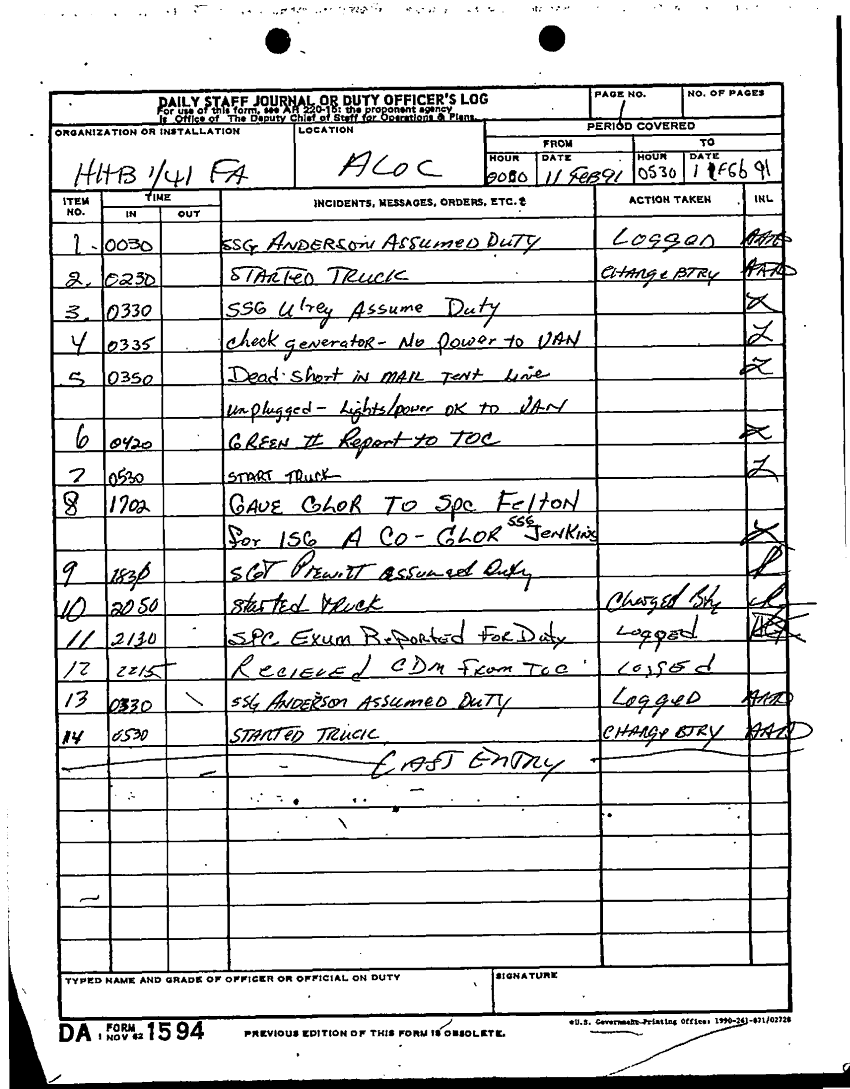 DAILY STAFF JOURNAL OR DUTY OFFICER'S LOG
For use of this form, see AR 220-15; the proponent agency
is Office of The Deputy Chief of Staff for Operations & Plans.
PAGE NO.
1
NO. OF PAGES
ORGANIZATION OR INSTALLATION
HHB 1/41 FA
LOCATION
ALOC
PERIOD COVERED
FROM
TO
HOUR
DATE
HOUR
DATE
11 FEB 91
0530
FEb 91
ITEM NO.
TIME
IN
OUT
INCIDENTS, MESSAGES, ORDERS, ETC.
ACTION TAKEN
INL
1. 0030 SSG ANDERSON ASSUMED DUTY Logged
2. 0230 STARTED TRUCK CHARGE BTRY
3. 0330 SSG Ulrey Assume Duty
4 0335 check generator - No power to VAN
5 0350 Dead short in MAIL TENT Line
unplugged - Lights/power OK to VAN
6 0420 GREEN II Report to TOC
7 0530 START TRUCK
8 1702 GAVE GLOR TO Spc FELTON
for 1SG A CO - GLOR SSG JENKINS
9 1830 SGT Prewitt assumed Duty
10 2050 Started TRUCK Charged Bty
11 2130 SPC Exum Reported For Duty Logged
12 2215 RECIEVED CDM From TOC Logged
13 0330 SSG ANDERSON ASSUMED DUTY Logged
14 0530 STARTED TRUCK CHARGE BTRY
LAST ENTRY
TYPED NAME AND GRADE OF OFFICER OR OFFICIAL ON DUTY
SIGNATURE
DA FORM 1594
1 NOV 62
PREVIOUS EDITION OF THIS FORM IS OBSOLETE.
U.S. Government Printing Office: 1990-261-871/02728